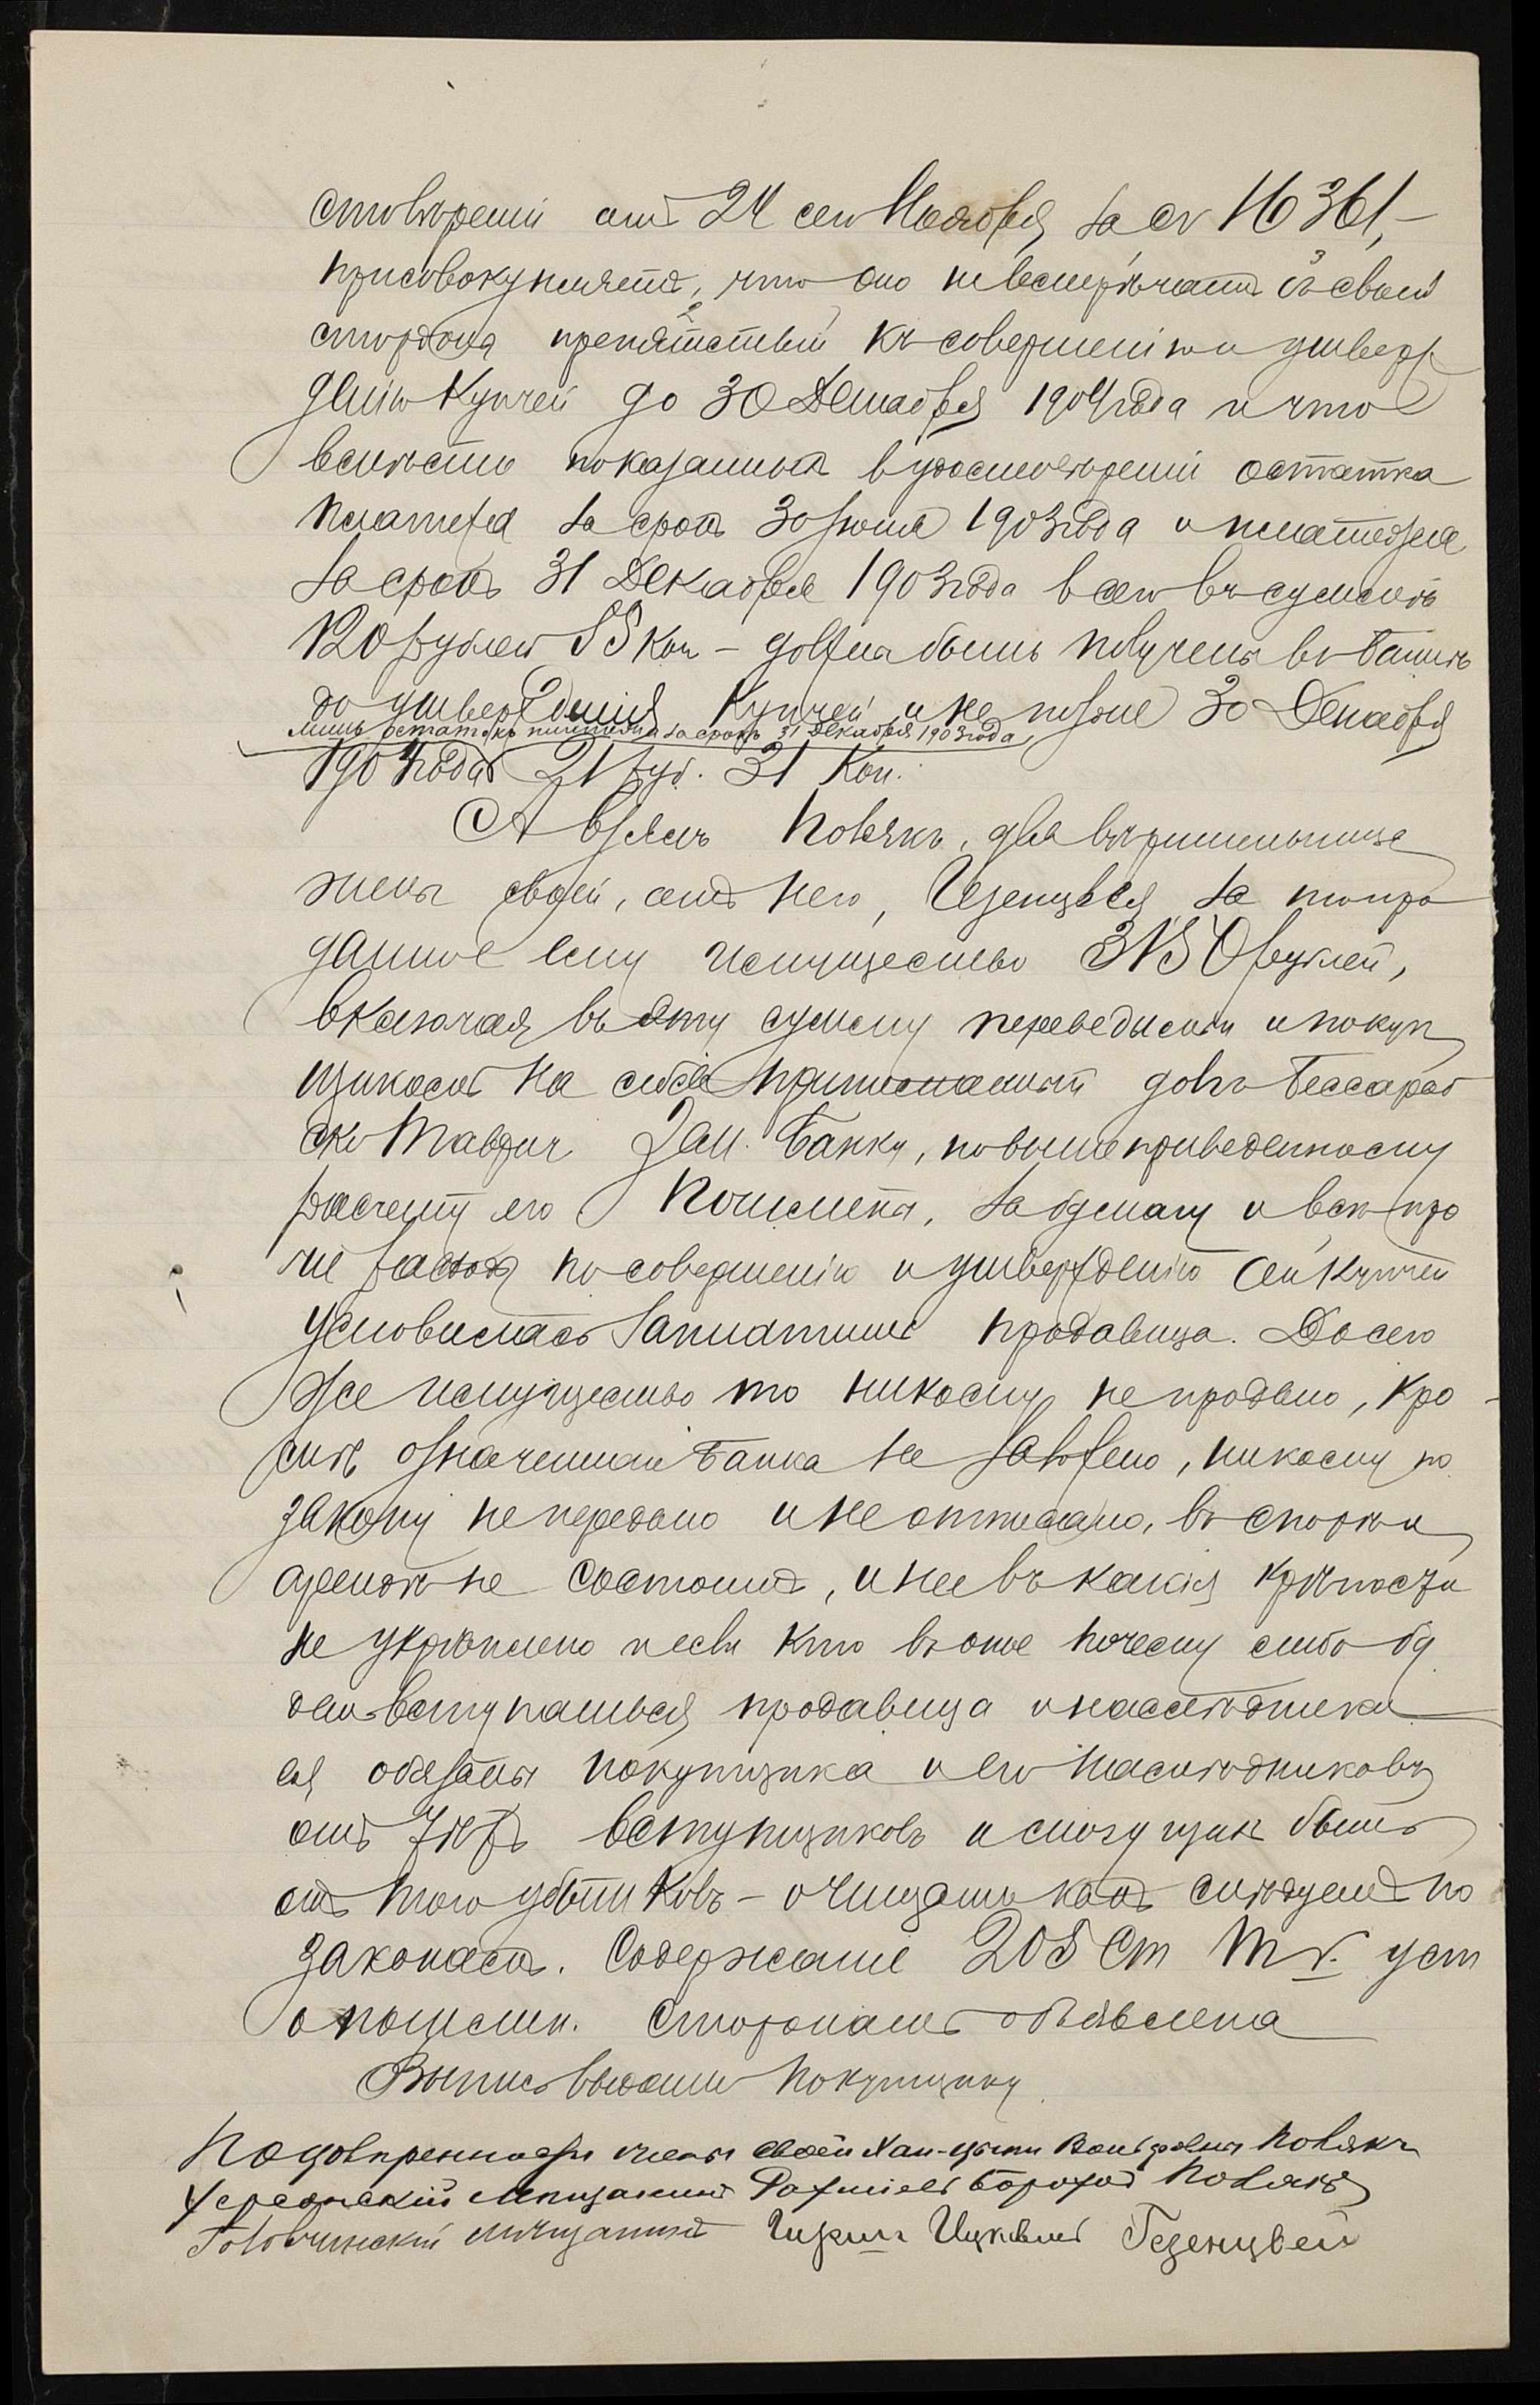 стоворении отъ 24 сего Ноября за № 16361,–
присовокупляетъ, что оно не встрѣчаетъ съ своей
стороны препятствій къ совершенію и утверж
денію купчей до 30 Декабря 1904 года и что
вмѣсто показанныхъ въ удостовѣреніи остатка
платежа за срокъ 30 Іюня 1903 года и платежа
за срокъ 31 Декабря 1903 года всего въ суммѣ
120 рублей 55 коп – должна быть получена въ Банкѣ
до утвержденія купчей и не позже 30 Декабря
лишь остатокъ платежа за срокъ 31 Декабря 1903 года,
1904 года 21 руб. 31 коп.
А взялъ Полякъ, для вѣрительницы
жены своей, отъ него, Гезенцвея за про
данное ему имущество 3150 рублей,
включая въ эту сумму переведенный покуп
щикомъ на себя долгъ Бессараб
ско Таврич. Зем. Банку, по вышеприведенному
расчету его Пошлины, за бумагу и всѣ про
чіе расходы по совершенію и утвержденію сей купчей
условилась заплатить продавица. До сего
же имущество то никому не продано, кро
мѣ означеннаго Банка не заложено, никому по
закону не передано и не отписано, въ спорѣ и
арестѣ не состоитъ, и ни въ какія крѣпости
не укрѣплено и если кто въ оное почему либо бу
детъ вступаться, продавица и наслѣдники
ея обязаны покупщика и его наслѣдниковъ
отъ тѣхъ вступщиковъ и могущихъ быть
отъ того убытковъ – очищать какъ слѣдуетъ по
законамъ. Содержаніе 205 ст. Т. V. уст
о пошлин. сторонамъ объявлена
Выпись выдать покупщику
По довѣренности жены своей Хаи-Цыпи Вольфовны Полякъ
Херсонскій мѣщанинъ Рахміель Борохов Полякъ
мѣщанинъ Ицковъ Гезенцвей